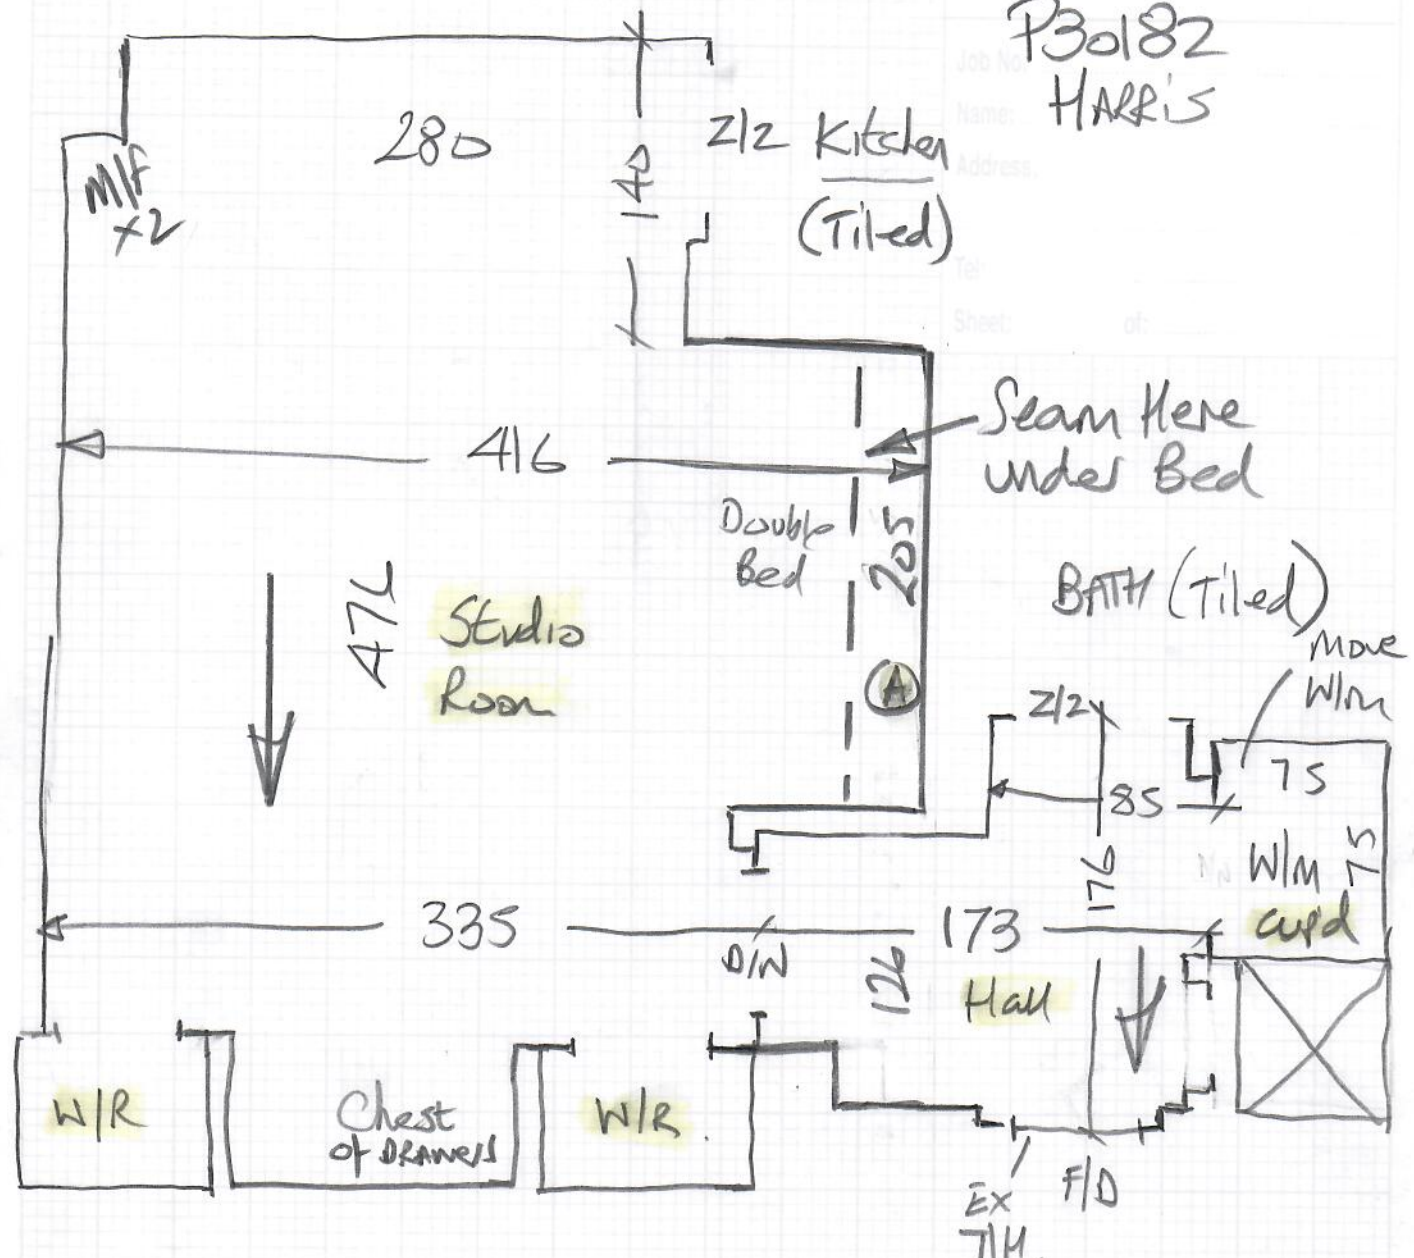 P30182
HARRIS
Job No:
Name:
Address.
Tel:
Sheet: of:
280
140
Z/2 Kitchen
(Tiled)
M/F
x2
416
Seam Here
under Bed
Double
Bed
205
476
Studio
Room
A
BATH (Tiled)
Move
W/M
Z/2
75
85
75
W/M
Cup'd
176
335
173
D/W
126
Hall
W/R
Chest
of DRAWERS
W/R
EX
T/H
F/D